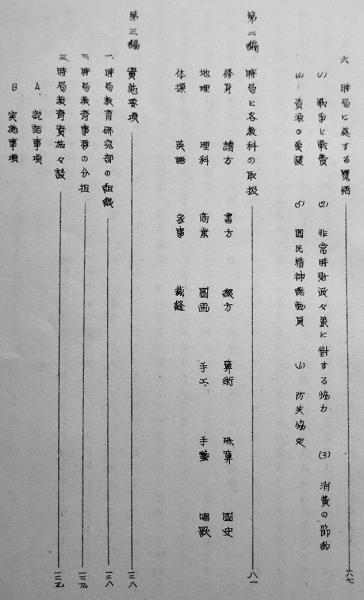 六、時局に処する覚悟 六七
(1) 戦争と戦費 (2) 非常時財政々策に対する協力 (3) 消費の節約
(4) 資源の愛護 (5) 国民精神総動員 (6) 防共協定
第二編 時局と各教科の取扱 八一
修身 読方 書方 綴方 算術 珠算 国史
地理 理科 商業 図画 手工 手芸 唱歌
体操 英語 家事 裁縫
第三編 実施要項 一三八
一、時局教育研究部の組織 一三八
二、時局教育事務の分担 一三九
三、時局教育実施々設 一三九
A 説話事項
B 実施事項